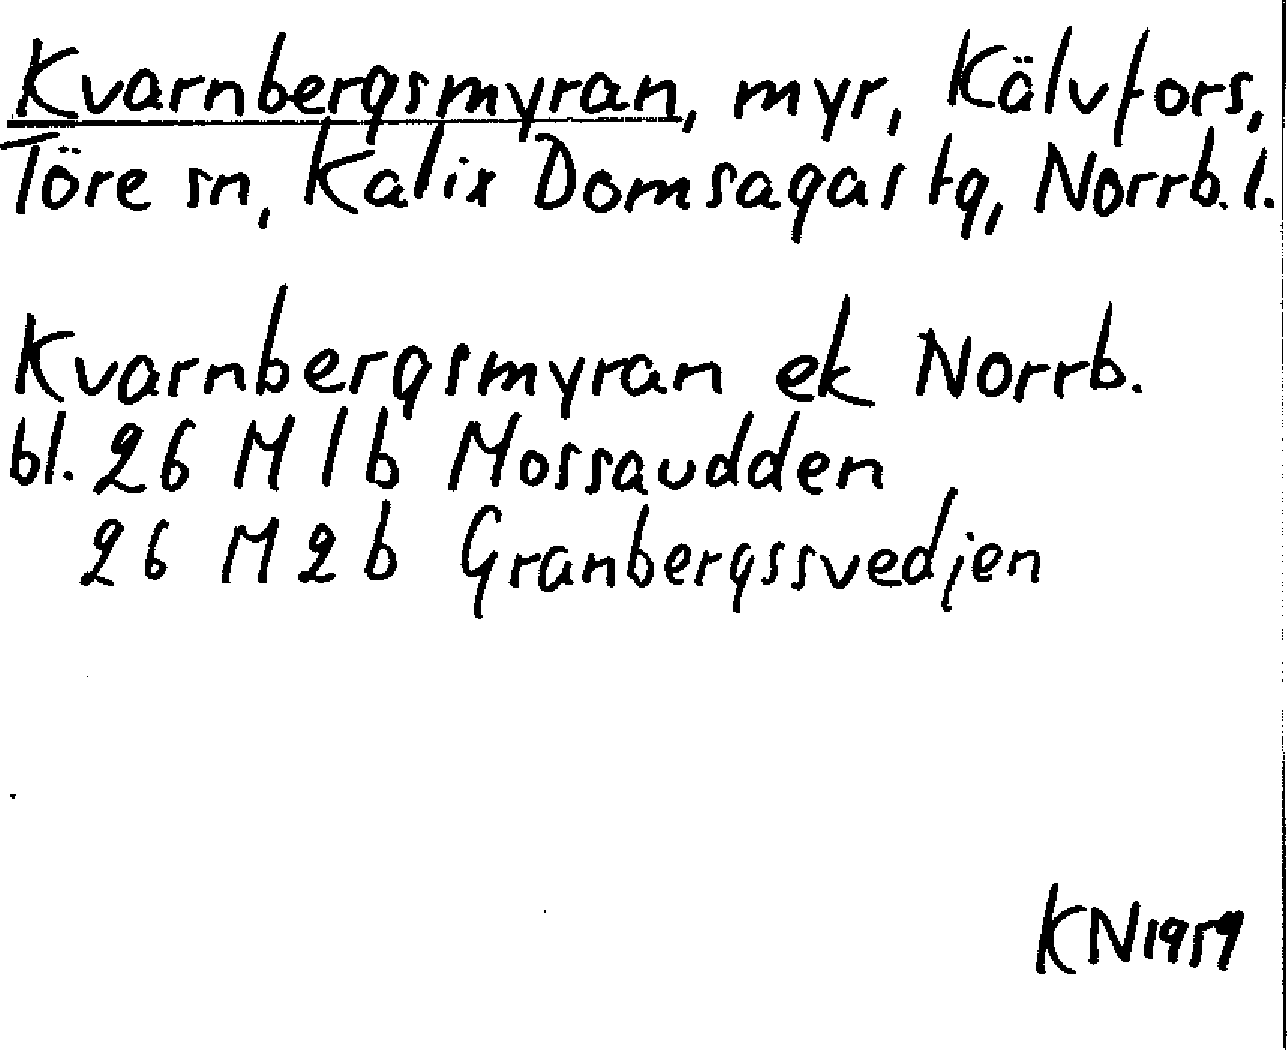 Kvarnbergsmyran, myr, Kälvfors,
Töre sn, Kalix Domsagas tg, Norrb. l.
Kvarnbergsmyran ek Norrb.
bl. 26 M 1 b Mossaudden
26 M 2 b Granbergssvedjen
KN 1959